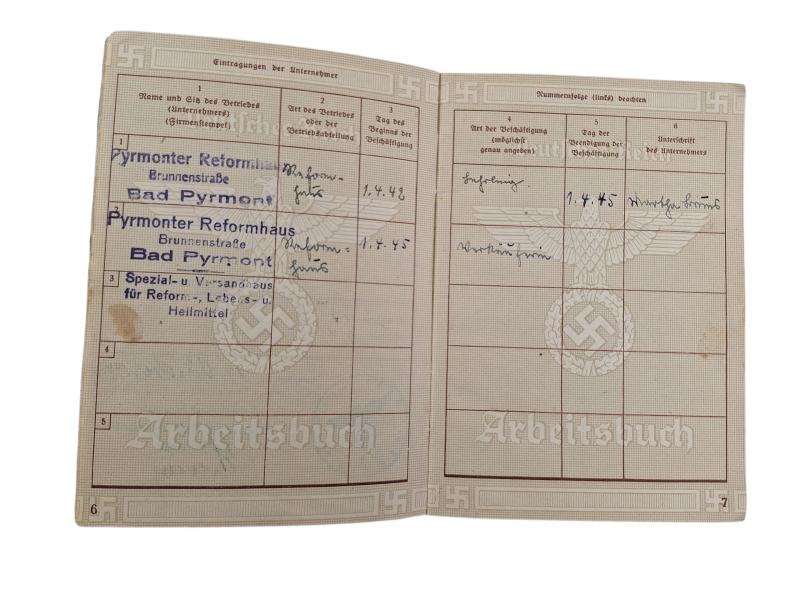 Eintragungen der Unternehmer
1
Name und Sitz des Betriebes
(Unternehmers)
(Firmenstempel)
2
Art des Betriebes
oder der
Betriebsabteilung
3
Tag des
Beginns der
Beschäftigung
1
Pyrmonter Reformhaus
Brunnenstraße
Bad Pyrmont
Reform-
haus
1.4.42
2
Pyrmonter Reformhaus
Brunnenstraße
Bad Pyrmont
Reform-
haus
1.4.45
3
Spezial- u. Versandhaus
für Reform-, Lebens- u.
Heilmittel
4
5
Arbeitsbuch
6
Nummernfolge (links) beachten
4
Art der Beschäftigung
(möglichst
genau angeben)
5
Tag der
Beendigung der
Beschäftigung
6
Unterschrift
des Unternehmers
Deutsches Reich
1.4.45
Verkäuferin
Arbeitsbuch
7